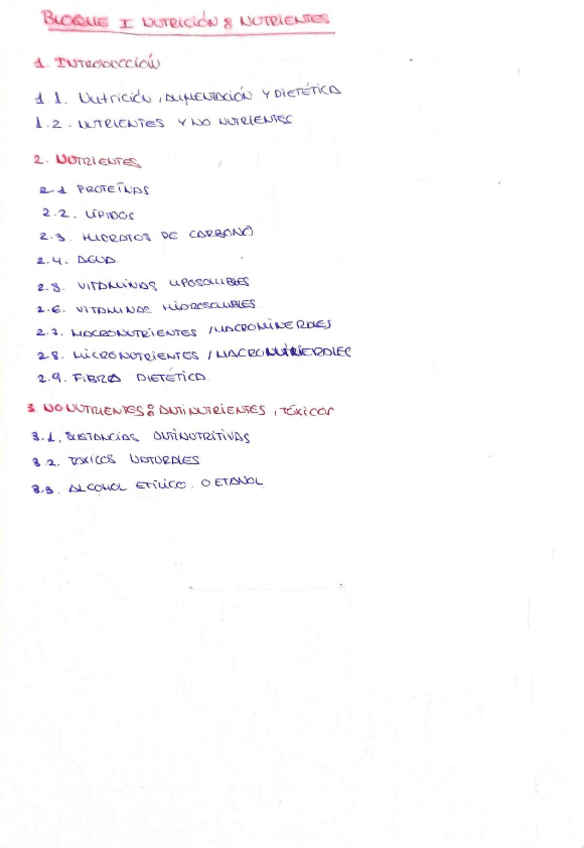 BLOQUE I NUTRICIÓN & NUTRIENTES
1. INTRODUCCIÓN
1.1. Nutrición, ALIMENTACIÓN Y DIETÉTICA
1.2. NUTRIENTES Y NO NUTRIENTES
2. NUTRIENTES
2.1 PROTEÍNAS
2.2. LÍPIDOS
2.3. HIDRATOS DE CARBONO
2.4. AGUA.
2.5. VITAMINAS LIPOSOLUBLES
2.6. VITAMINAS HIDROSOLUBLES.
2.7. MACRONUTRIENTES / MACROMINERALES
2.8. MICRONUTRIENTES /
2.9. FIBRA DIETÉTICA.
3. NO NUTRIENTES: ANTINUTRIENTES, TÓXICOS
3.1. SUSTANCIAS ANTINUTRITIVAS
3.2. TÓXICOS NATURALES
3.3. ALCOHOL ETÍLICO. O ETANOL